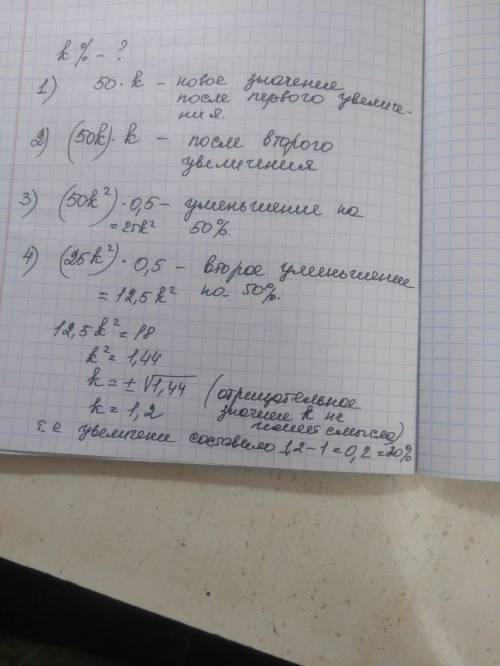 k% - ?
1) 50·k - новое значение
после первого увеличе-
ния.
2) (50k)·k - после второго
увеличения
3) (50k²)·0,5 - уменьшение на
= 25k² 50%.
4) (25k²)·0,5 - второе уменьшение
= 12,5k² на 50%.
12,5k² = 18
k² = 1,44
k = ±√1,44 (отрицательное
k = 1,2 значение k не
имеет смысла)
т.е увеличение составило 1,2-1=0,2=20%